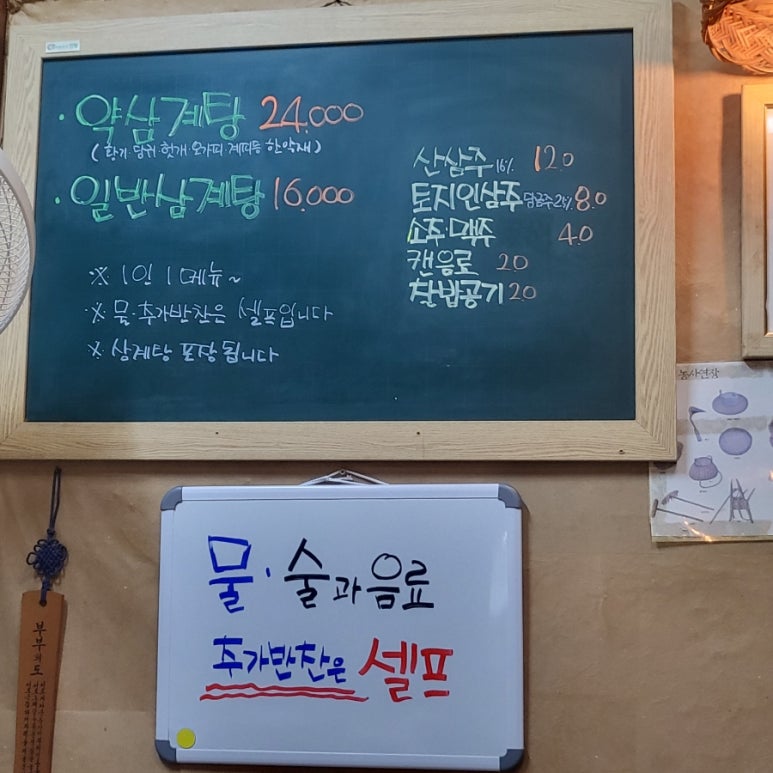 · 약삼계탕 24.000
(황기·당귀·헛개·오가피·계피등 한약재)
· 일반삼계탕 16.000
※ 1인 1메뉴~
※ 물·추가반찬은 셀프입니다
※ 삼계탕 포장됩니다
산삼주 16% 12.0
토지인삼주 담금주 25% 8.0
소주·맥주 4.0
캔음료 2.0
찰밥공기 2.0
농사연장
물·술과 음료
추가반찬은 셀프
부부의 도